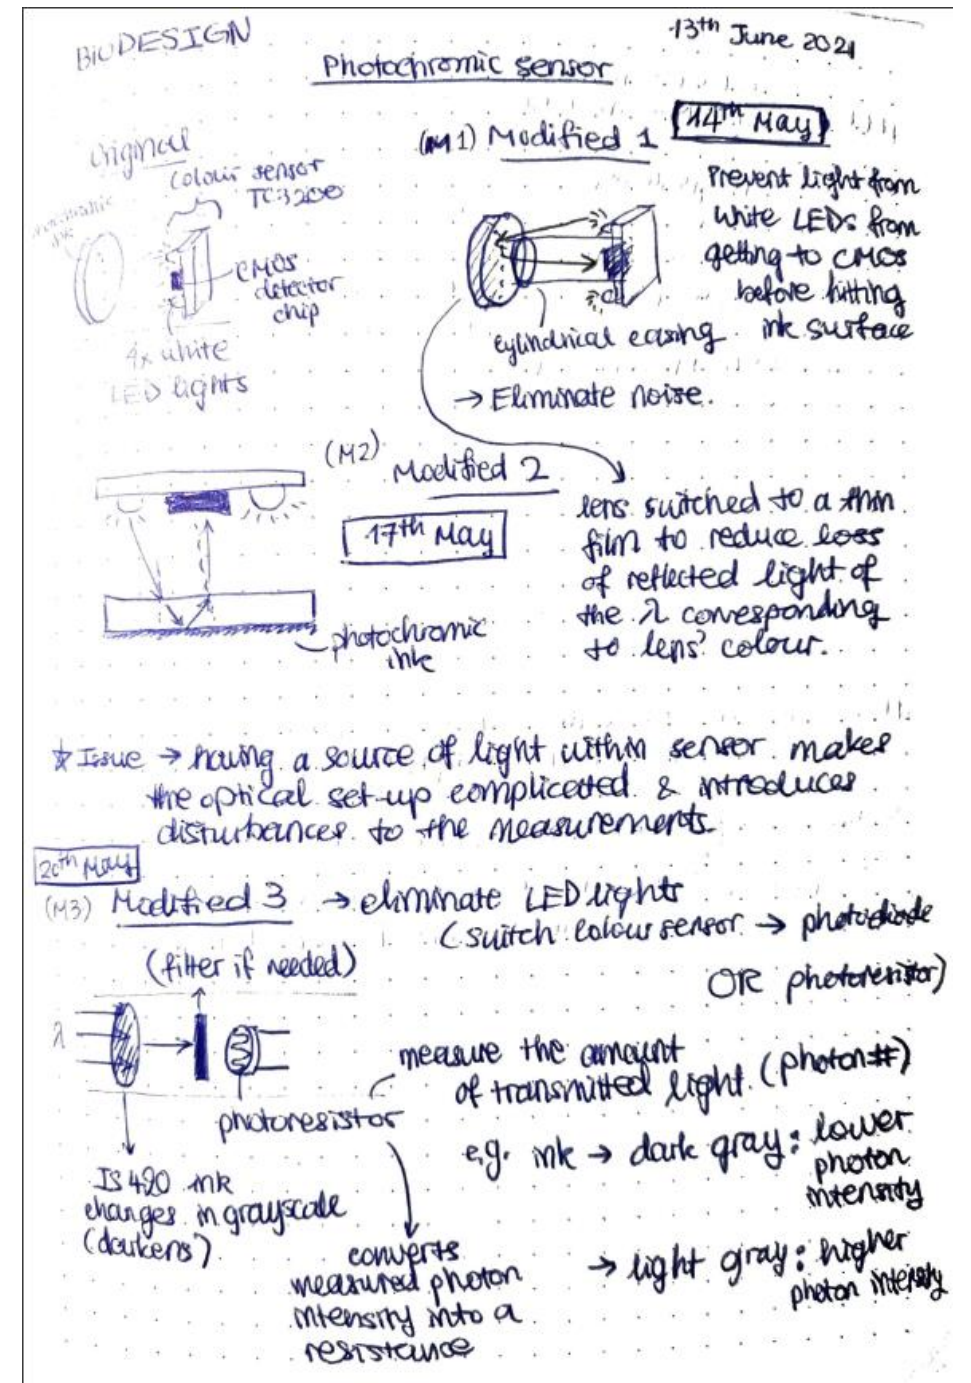 BIODESIGN
13th June 2021
Photochromic sensor
Original
colour sensor
TC3200
CMOS
detector
chip
4x white
LED lights
(M1) Modified 1
14th May
Prevent light from
white LEDs from
getting to CMOS
before hitting
ink surface
cylindrical casing
→ Eliminate noise.
(M2)
Modified 2
17th May
lens switched to a thin
film to reduce loss
of reflected light of
the λ corresponding
to lens' colour.
photochromic
ink
☆ Issue → having a source of light within sensor makes
the optical set-up complicated & introduces
disturbances to the measurements.
20th May
(M3) Modified 3 → eliminate LED lights
(switch colour sensor → photodiode
OR photoresistor)
(filter if needed)
λ
photoresistor
measure the amount
of transmitted light (photon #)
e.g. ink → dark gray: lower
photon
intensity
→ light gray: higher
photon intensity
IS 420 ink
changes in grayscale
(darkens)
converts
measured photon
intensity into a
resistance